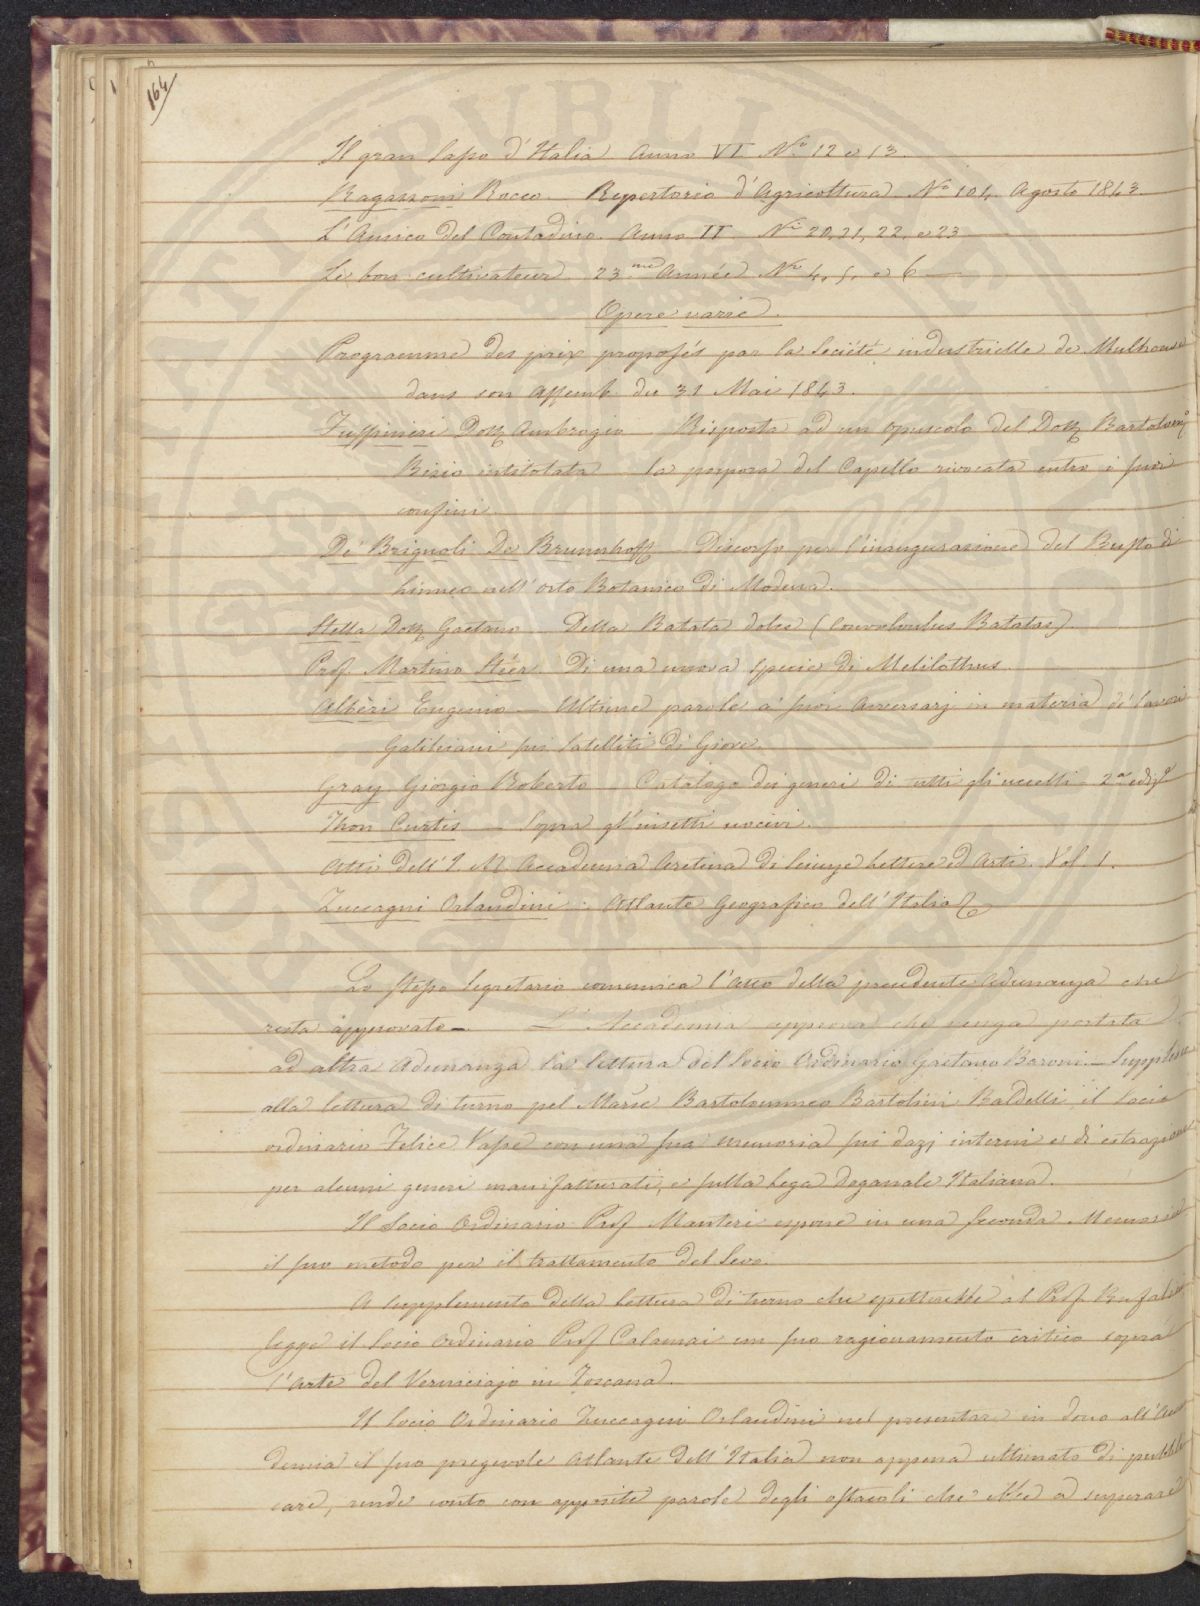 164
PVBLICAE
Il gran Sasso d'Italia Anno VI Nº 12 e 13.
Ragazzoni Rocco. Repertorio d'Agricoltura Nº 104. Agosto 1843.
L'Amico del Contadino. Anno II Nⁱ 20, 21, 22, e 23
Le bon cultivateur 23me Année Nº 4, 5, e 6
Opere varie.
Programme des prix proposés par la Société industrielle de Mulhouse
dans son Assemb. du 31 Mai 1843.
Fusinieri Dott Ambrogio Risposta ad un opuscolo del Dott Bartolomº
Bizio intitolata la porpora del Capello rivocata entro i suoi
confini.
De' Brignoli De Brunnhoff Discorso per l'inaugurazione del Busto di
Linneo nell'orto Botanico di Modena.
Stella Dott Gaetano Della Batata dolce (Convolvulus Batatas).
Prof. Martino Stéer Di una nuova specie di Melilothus.
Albèri Eugenio — Ultime parole a' suoi Avversarj in materia de' lavori
Galileiani sui Satelliti di Giove.
Gray Giorgio Roberto Catalogo dei generi di tutti gli uccelli 2a ediz.e
Jhon Curtis — Sopra gl'insetti nocivi.
Atti dell'I. R. Accademia Aretina di Scienze Lettere ed Arti. Vol 1.
Zuccagni Orlandini: Atlante Geografico dell'Italia
Lo stesso Segretario comunica l'Atto della precedente Adunanza che
resta approvato. — L'Accademia approva che venga portata
ad altra Adunanza la lettura del Socio Ordinario Gaetano Baroni. — Supplisce
alla lettura di turno pel March.se Bartolommeo Bartolini Baldelli il Socio
ordinario Felice Vasse con una sua memoria sui dazj interni e di estrazione
per alcuni generi manifatturati, e sulla Lega doganale Italiana.
Il Socio Ordinario Prof. Manteri espone in una seconda Memoria
il suo metodo per il trattamento del Sevo.
A supplemento della Lettura di turno che spetterebbe al Prof. Bufalini
legge il Socio Ordinario Prof Calamai un suo ragionamento critico sopra
l'Arte del Verniciajo in Toscana.
Il Socio Ordinario Zuccagni Orlandini nel presentare in dono all'Acca
demia il suo pregevole Atlante dell'Italia non appena ultimato di pubbli
care, rende conto con apposite parole degli ostacoli che ebbe a superare